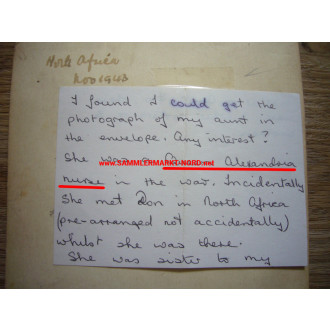 North Africa
Nov 1943
I found I could get the
photograph of my aunt in
the envelope. Any interest?
She was Alexandria
www.SAMMLERMARKT-NORD.net
nurse in the war. Incidentally
She met Don in North Africa
(pre-arranged not accidentally)
whilst she was there.
She was sister to my